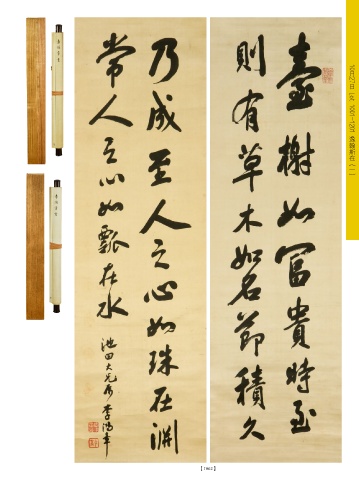 臺榭如富貴時至
則有草木如名節積久
乃成至人之心如珠在淵
常人之心如瓢在水
池田大兄属 李鴻章